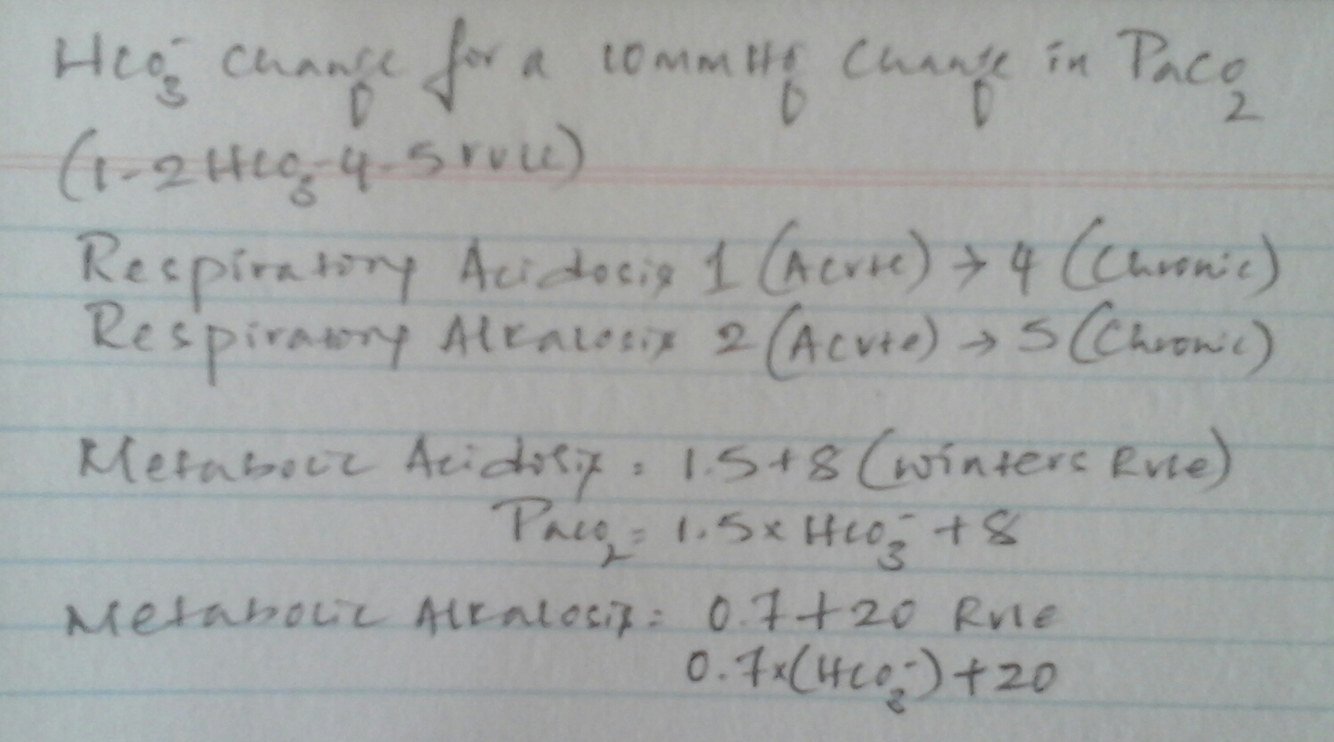 HCO₃⁻ change for a 10 mm Hg change in PaCO₂
(1-2 HCO₃-4-5 rule)
Respiratory Acidosis 1 (Acute) → 4 (Chronic)
Respiratory Alkalosis 2 (Acute) → 5 (Chronic)
Metabolic Acidosis: 1.5+8 (winters Rule)
PaCO₂ = 1.5 x HCO₃⁻ + 8
Metabolic Alkalosis: 0.7+20 Rule
0.7x(HCO₃⁻)+20